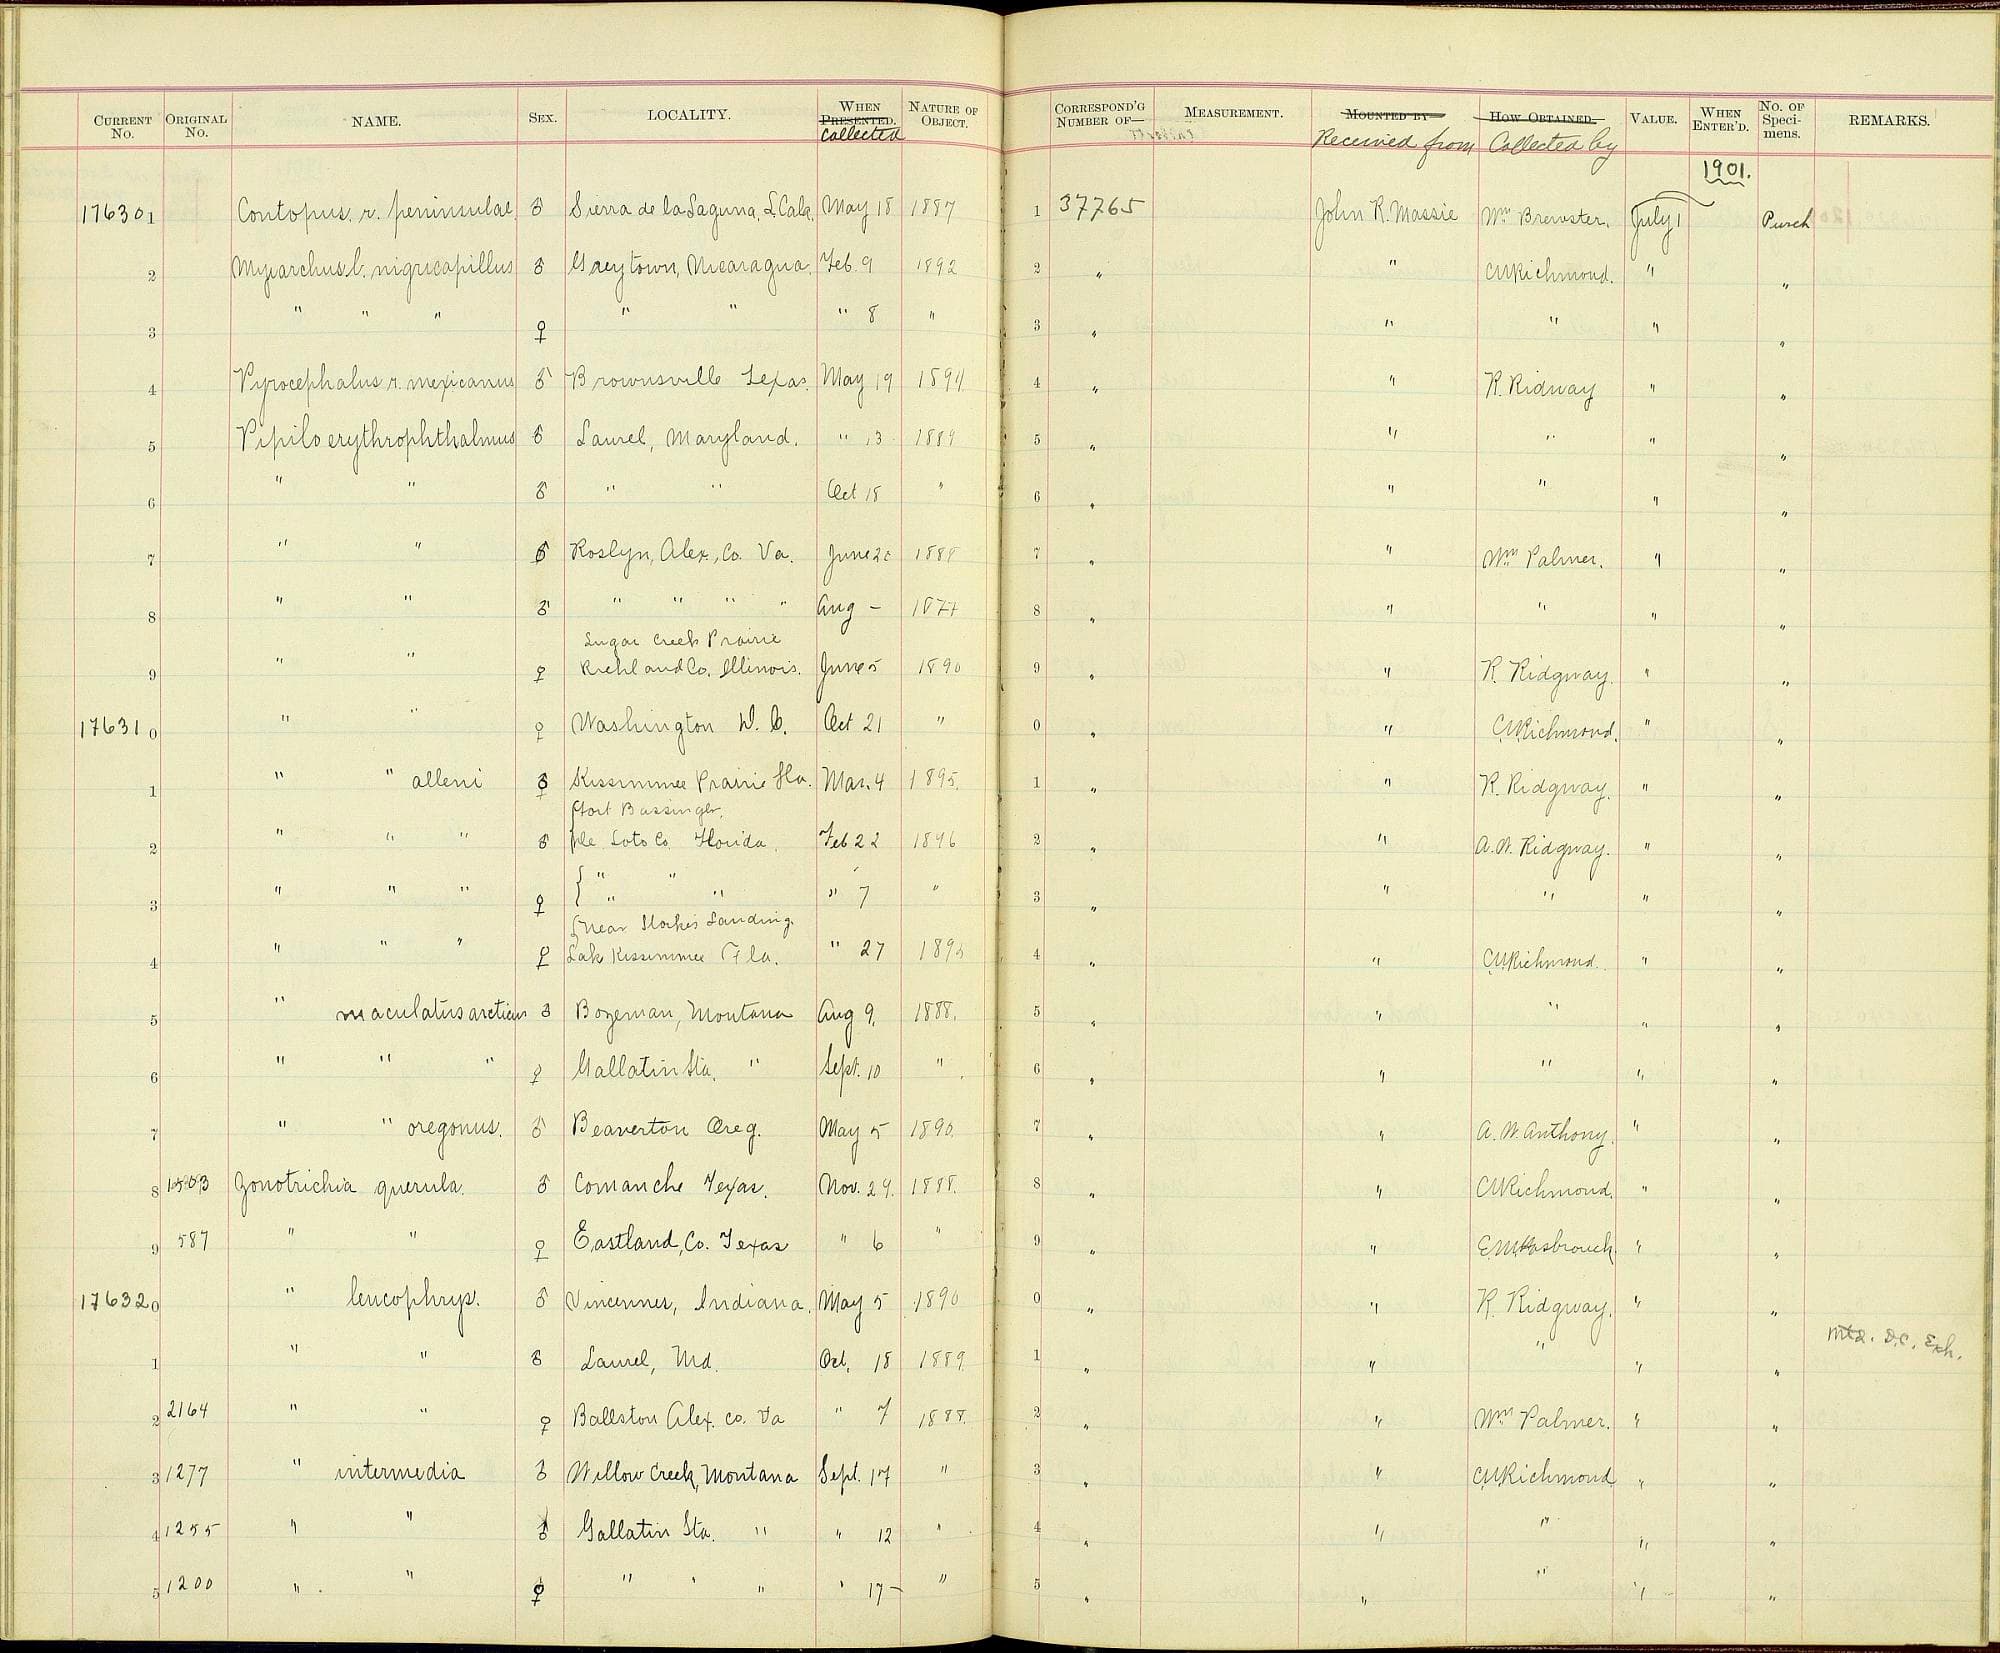 CURRENT No. ORIGINAL No. NAME. SEX. LOCALITY. WHEN PRESENTED. collected NATURE OF OBJECT. CORRESPOND'G NUMBER OF— MEASUREMENT. MOUNTED BY Received from HOW OBTAINED. Collected by VALUE. WHEN ENTER'D. No. OF Specimens. REMARKS.
1901.
17630 1 Contopus. r. peninsulae. ♂ Sierra de la Laguna, L. Cala. May 18 1887 1 37765 John R. Massie Wm Brewster. July 1 Purch
2 Myiarchus l. nigricapillus ♂ Greytown, Nicaragua. Feb. 9 1892 2 " " C.W. Richmond. " "
3 " " " ♀ " " " 8 " 3 " " " " "
4 Pyrocephalus r. mexicanus ♂ Brownsville Texas. May 19 1894 4 " " R. Ridway " "
5 Pipilo erythrophthalmus ♂ Laurel, Maryland. " 13 1889 5 " " " " "
6 " " ♂ " " Oct 18 " 6 " " " " "
7 " " ♂ Roslyn, Alex., Co. Va. June 1888 7 " " Wm Palmer. " "
8 " " ♂ " " " " Aug – 1877 8 " " " " "
Sugar Creek Prairie
9 " " ♀ Richland Co. Illinois. June 5 1890 9 " " R. Ridgway. " "
17631 0 " " ♀ Washington D. C. Oct 21 " 0 " " C.W. Richmond. " "
1 " " alleni ♂ Kissimmee Prairie Fla. Mar. 4 1895. 1 " " R. Ridgway. " "
Fort Bassinger.
2 " " " ♂ De Soto Co. Florida. Feb 22 1896 2 " " A. W. Ridgway. " "
3 " " " ♀ " " " " " 7 " 3 " " " " "
Near Landing.
4 " " " ♀ Lak Kissimmee Fla. " 27 1895 4 " " C.W. Richmond. " "
5 " maculatus arcticus ♂ Bozeman, Montana Aug 9. 1888. 5 " " " " "
6 " " " ♀ Gallatin Sta. " Sept. 10 " 6 " " " " "
7 " " oregonus. ♂ Beaverton Oreg. May 5 1890. 7 " " A. W. Anthony. " "
8 1503 Zonotrichia querula. ♂ Comanche Texas. Nov. 29. 1888. 8 " " C.W. Richmond. " "
9 587 " " ♀ Eastland, Co. Texas " 6 " 9 " " E.M. Hasbrouck. " "
17632 0 " leucophrys. ♂ Vincennes, Indiana. May 5 1890 0 " " R. Ridgway. " "
1 " " ♂ Laurel, Md. Oct. 18 1889. 1 " " " " " Mtd. D.C. Exh.
2 2164 " " ♀ Ballston Alex. Co. Va " 7 1888. 2 " " Wm Palmer. " "
3 1277 " intermedia ♂ Willow Creek, Montana Sept. 17 " 3 " " C.W. Richmond " "
4 1255 " " ♂ Gallatin Sta. " " 12 " 4 " " " " "
5 1200 " " ♀ " " " " 17 – " 5 " " " " "